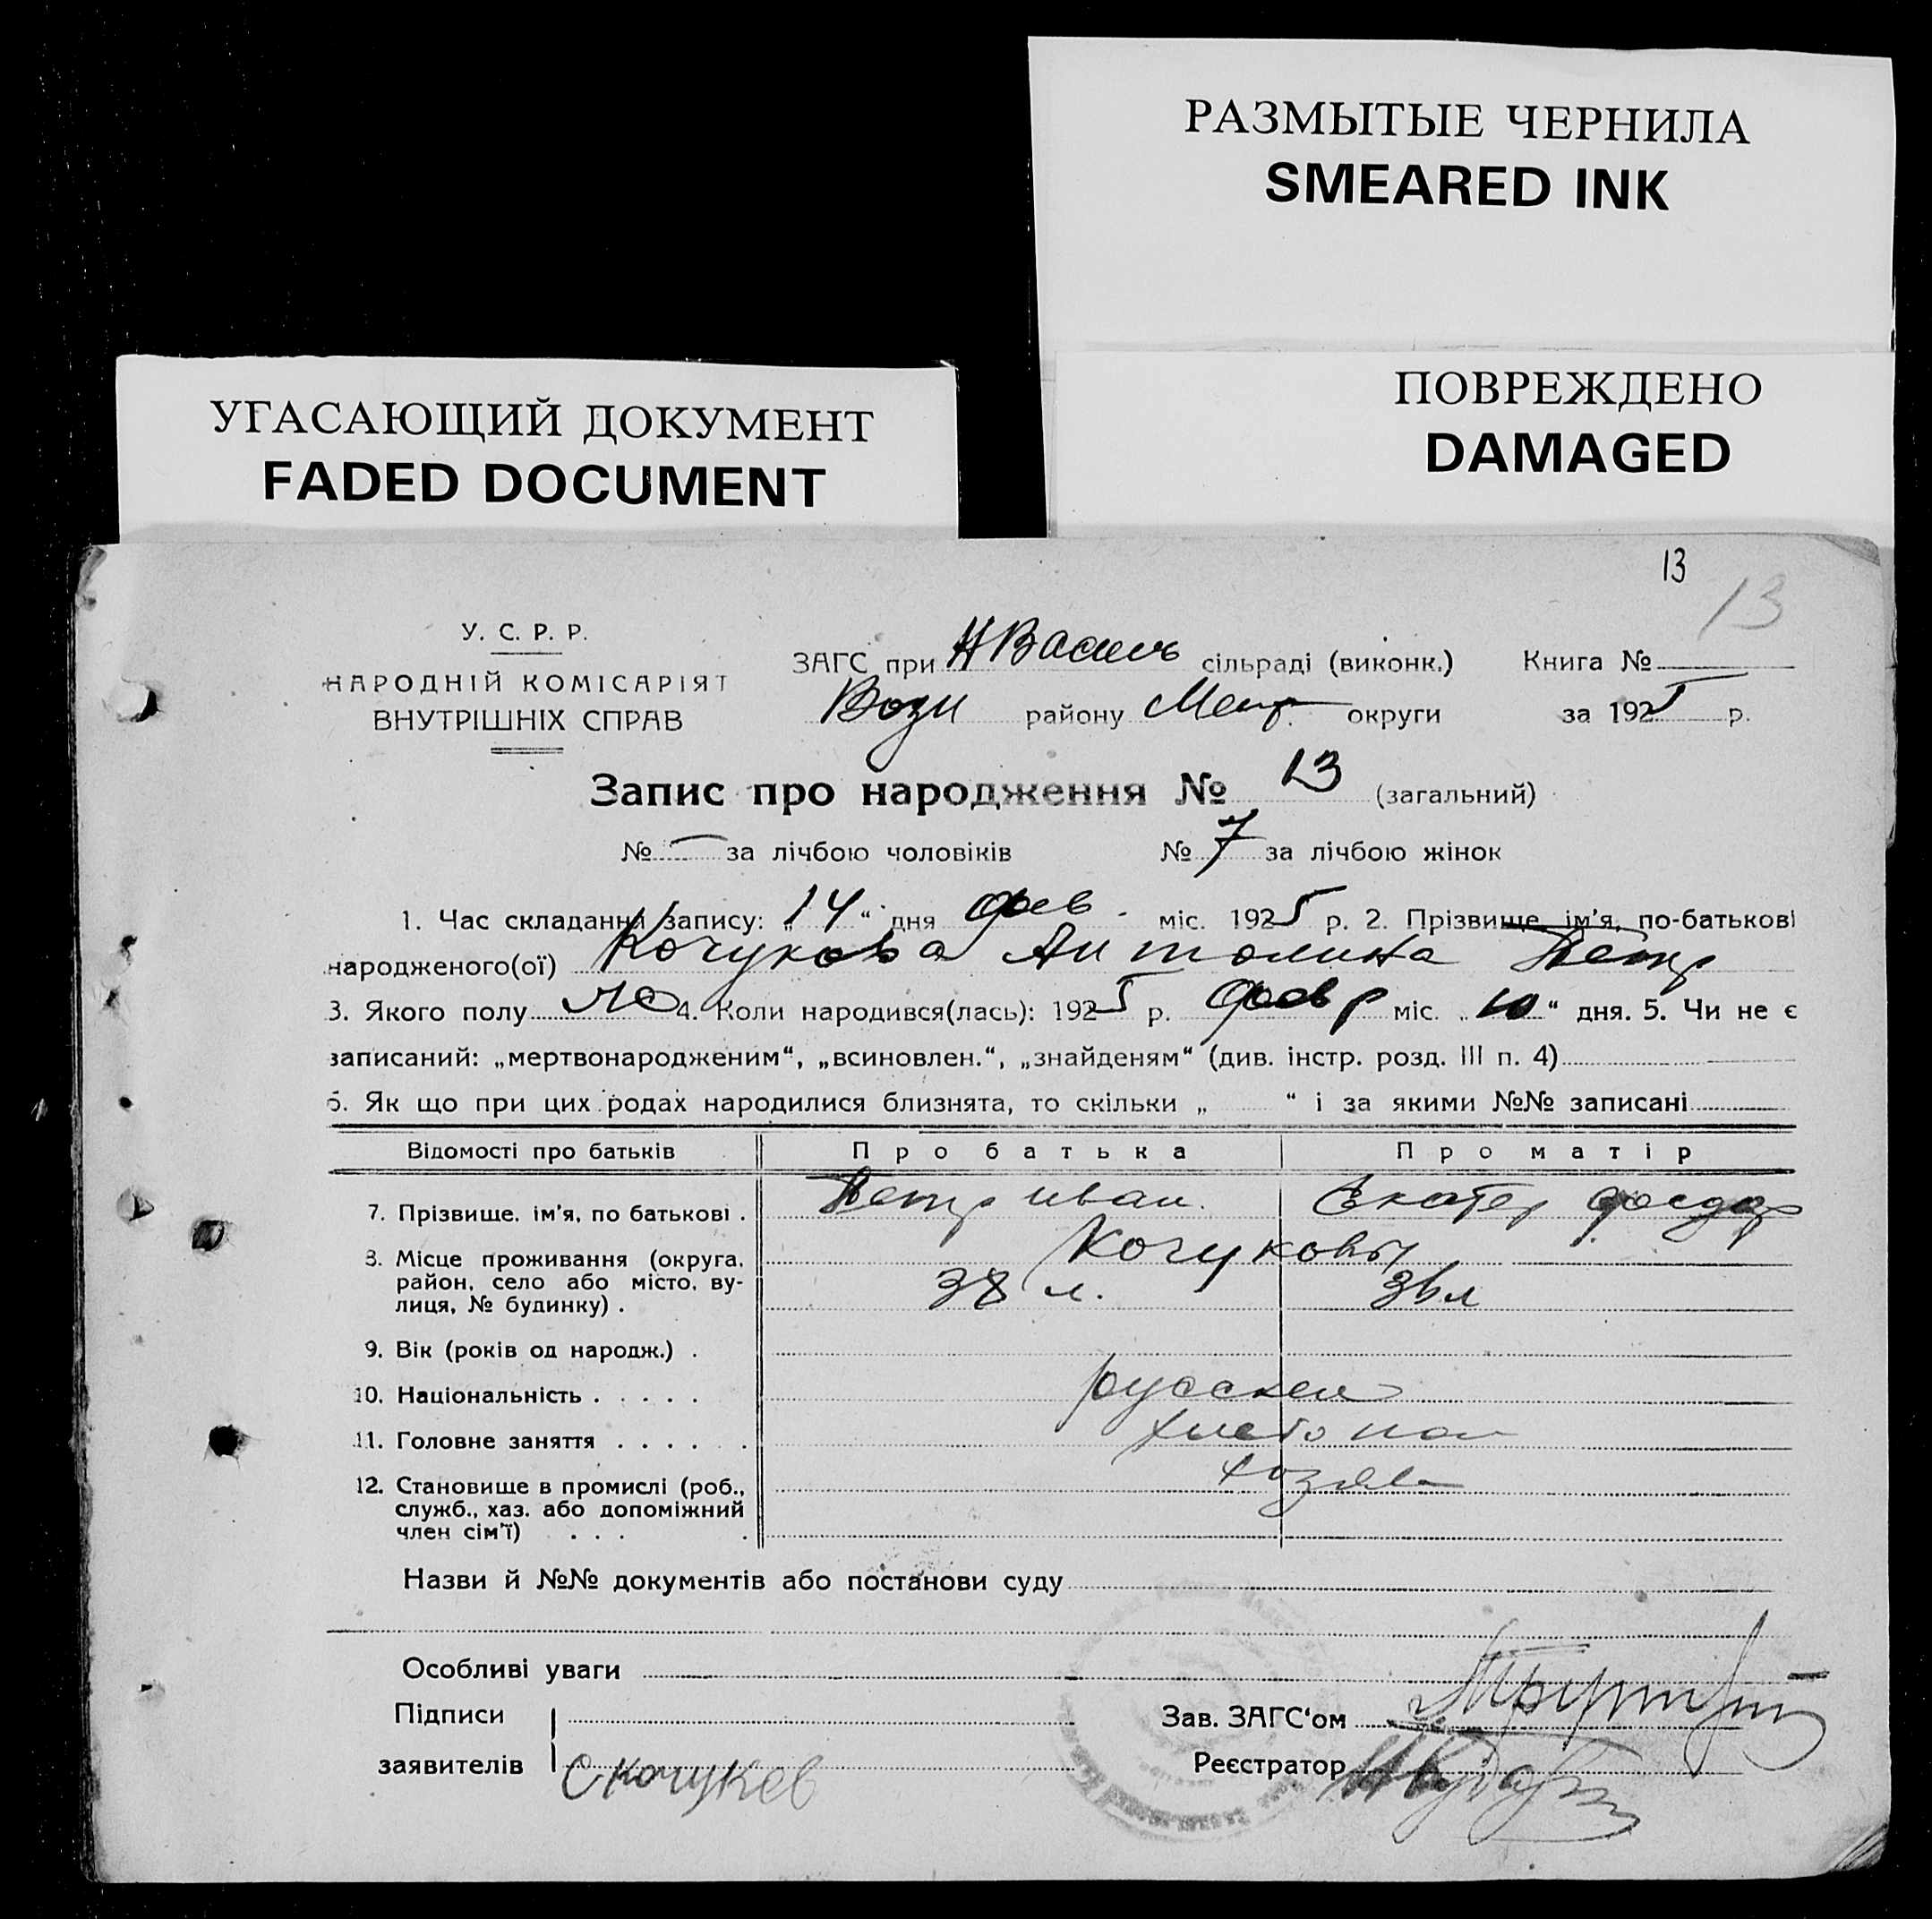 РАЗМЫТЫЕ ЧЕРНИЛА
SMEARED INK
УГАСАЮЩИЙ ДОКУМЕНТ
FADED DOCUMENT
ПОВРЕЖДЕНО
DAMAGED
13
13
У. С. Р. Р.
НАРОДНІЙ КОМІСАРІЯТ
ВНУТРІШНІХ СПРАВ
ЗАГС при Н Васил сільраді (виконк.) Книга №
району округи за 1925 р.
Запис про народження № 13 (загальний)
№ — за лічбою чоловіків № 7 за лічбою жінок
1. Час складання запису: „14“ дня фев. міс. 1925 р. 2. Прізвище, ім'я, по-батькові
народженого(ої) Кочукова Антонина Петр
3. Якого полу 4. Коли народився(лась): 1925 р. февр міс. „10“ дня. 5. Чи не є
записаний: „мертвонародженим“, „всиновлен.“, „знайденям“ (див. інстр. розд. III п. 4)
6. Як що при цих родах народилися близнята, то скільки „ “ і за якими №№ записані
Відомості про батьків Про батька Про матір
7. Прізвище, ім'я, по батькові . Петр иван. Екатер федор
Кочуковы
8. Місце проживання (округа, район, село або місто, ву-
лиця, № будинку) . 38 л. 36 л
9. Вік (років од народж.) .
10. Національність . . . . . русские
11. Головне заняття . . . . . .
12. Становище в промислі (роб.,
служб., хаз. або допоміжний
член сім'ї) . . . .
Назви й №№ документів або постанови суду
Особливі уваги
Підписи
заявителів С Кочуков
Зав. ЗАГС'ом
Реєстратор